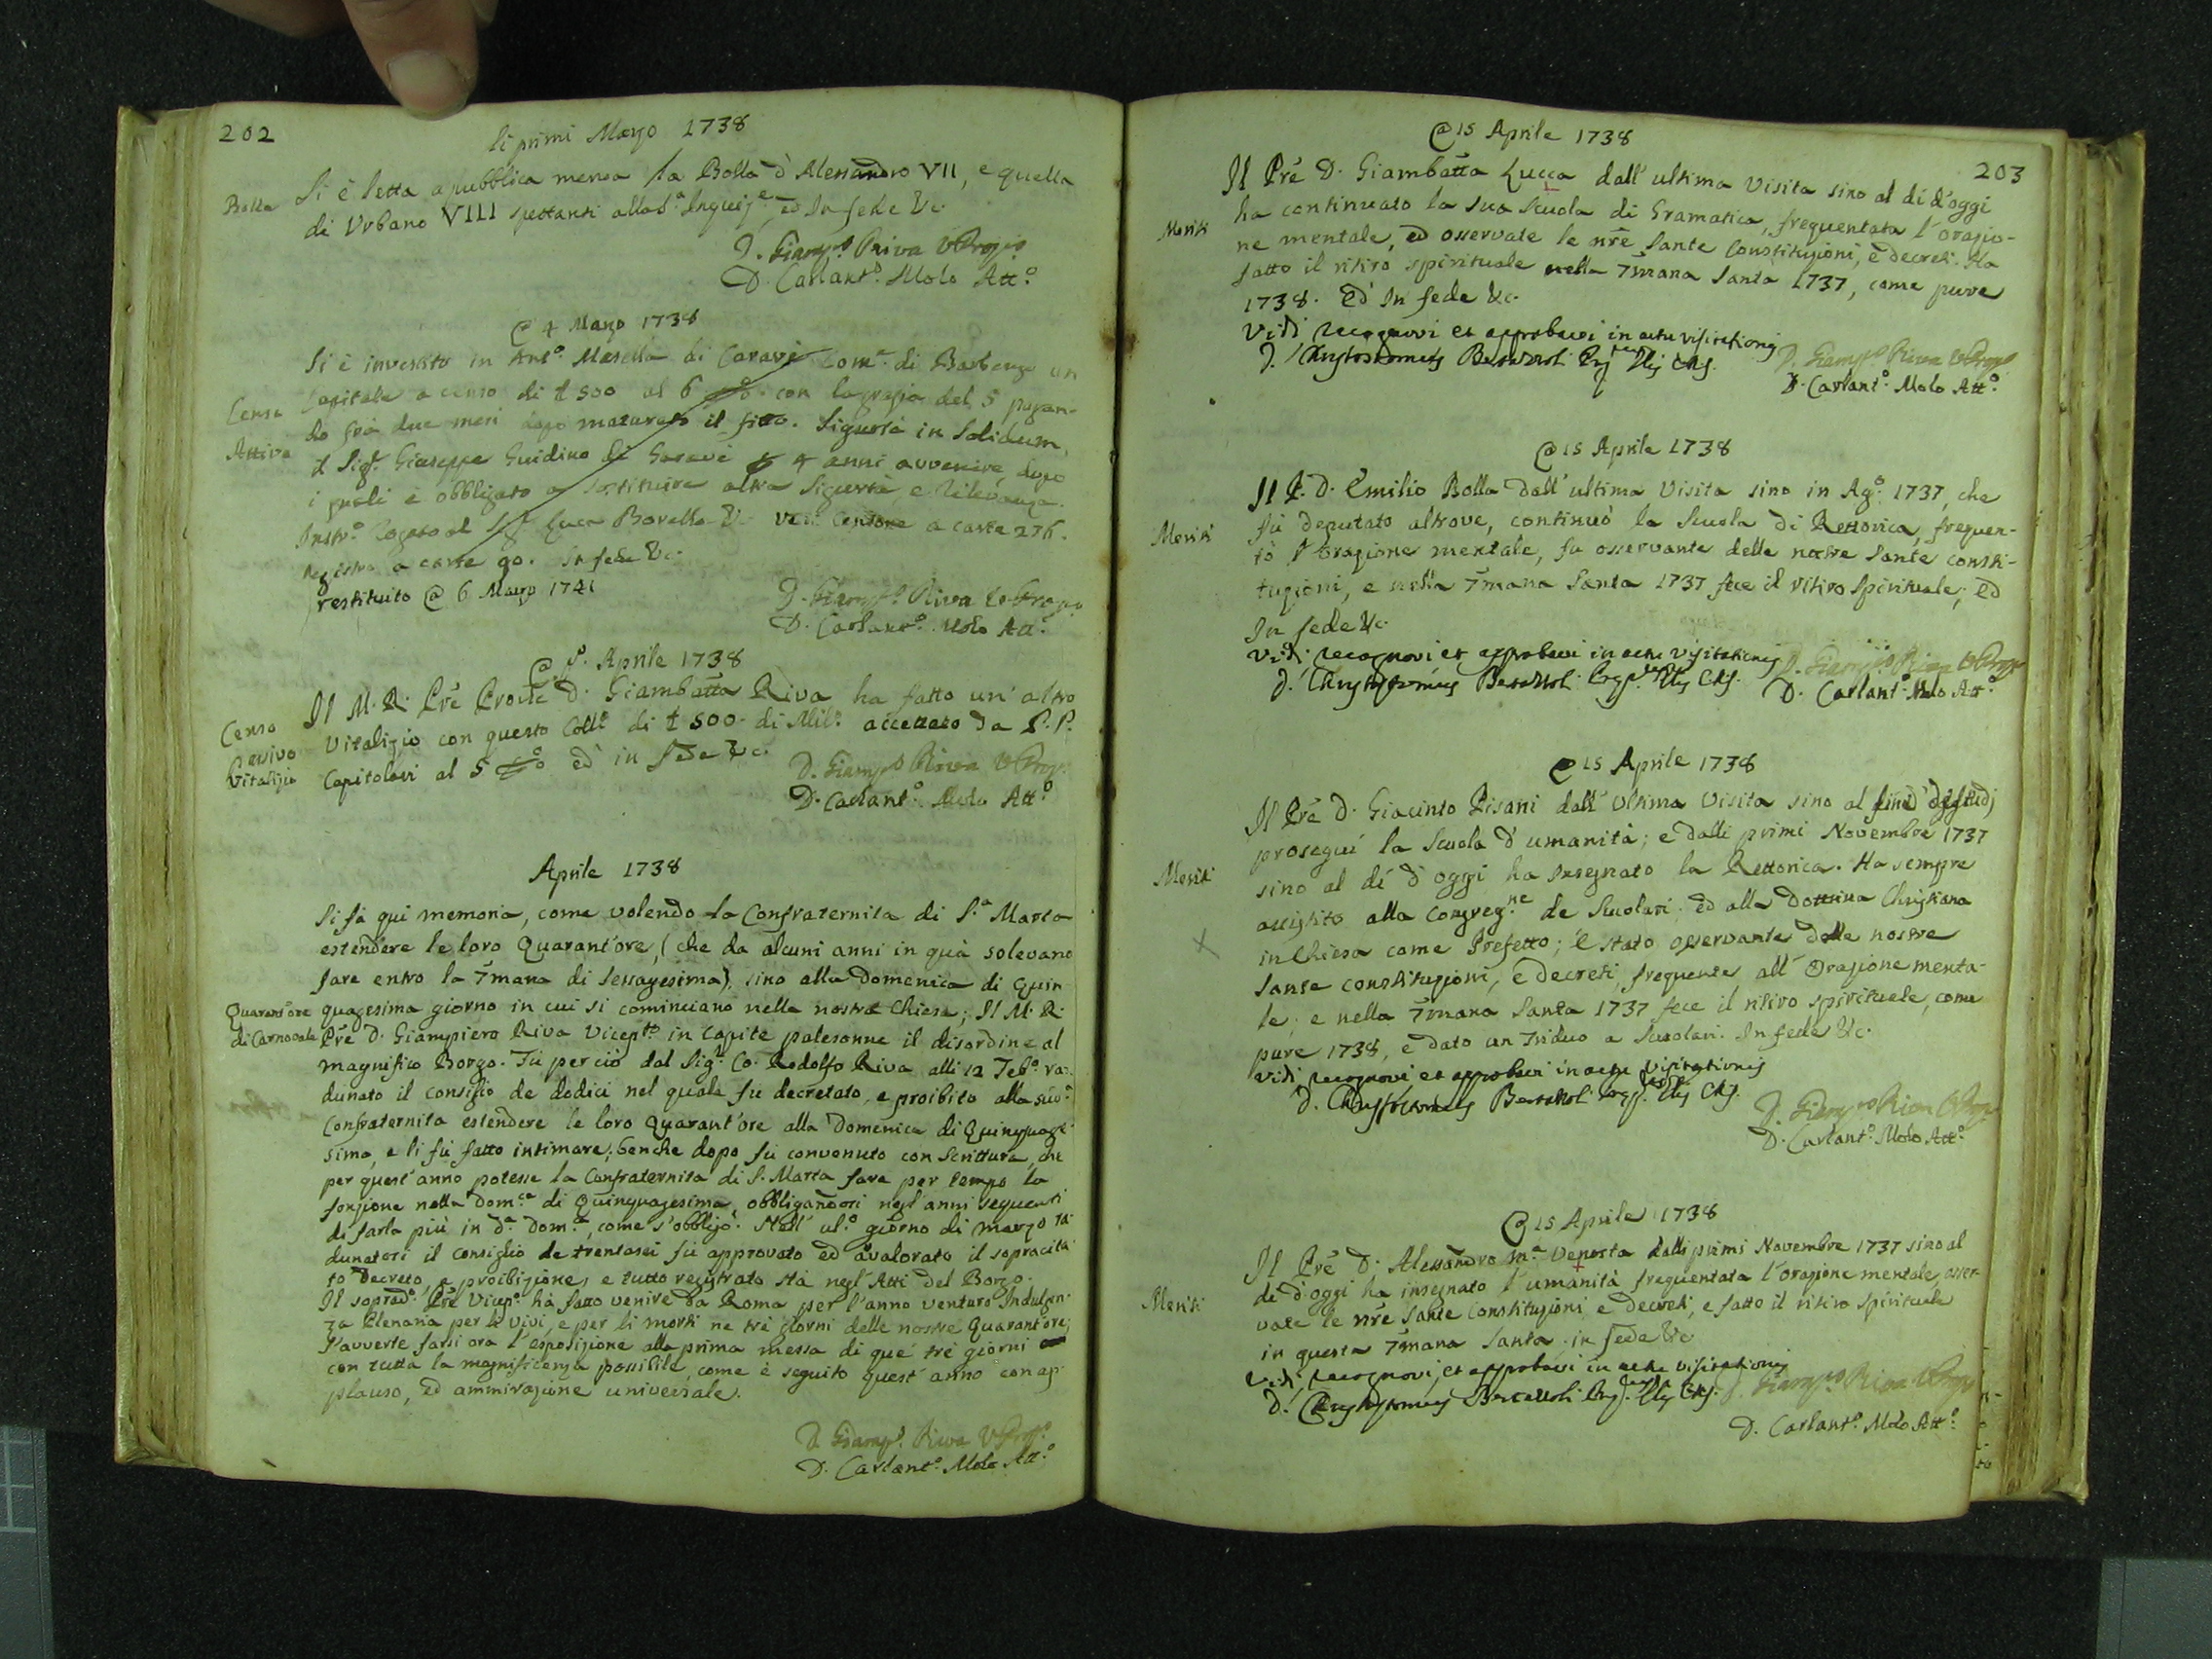 202
li primi Marzo 1738
Bolla
Si è letta a pubblica mensa la Bolla d'Alessandro VII, e quella
di Urbano VIII spettanti alla S.ª Inquisiz.e, ed In fede &c.
D. Giamp.o Riva VProp.o
D. Carlant.o Molo Att.o
@ 4 Marzo 1738
Censo
Attivo
Si è investito in Ant.o Masella di Caravè Com.e di Barbengo un
Capitale a censo di £ 500 al 6 con la grazia del 5 pagan-
do frà due mesi dopo maturato il fitto. Sigurtà in Solidum,
il Sig.r Giuseppe Guidino di 4 anni avvenire, dopo
i quali è obbligato a sostituire altra Sigurtà, e rilevanza.
Instr.o Rogato al Luca Borella &c. vedi Censone a carte 276.
registro a carte 90. In fede &c.
restituito @ 6 Marzo 1741
D. Giamp.o Riva VProp.o
D. Carlant.o Molo Att.o
@ p.o Aprile 1738
Censo
Passivo
Vitalizio
Il M. R. Prē Prov.le D. Giambatta Riva ha fatto un' altro
Vitalizio con questo Coll.o di £ 500 di Mil.o accettato da P.P.
Capitolari al 5 ed in fede &c.
D. Giamp.o Riva VProp.
D. Carlant.o Molo Att.o
Aprile 1738
Quarant'ore
di Carnovale
Si fà qui memoria, come volendo la Confraternita di S.ª Marta
estendere le loro Quarant'ore, (che da alcuni anni in quà solevano
fare entro la 7mana di Sessagesima), sino alla Domenica di Quin-
quagesima giorno in cui si cominciano nella nostra Chiesa; Il M. R.
Prē D. Giampiero Riva Vicep.to in Capite palesonne il disordine al
magnifico Borgo. Fù perciò dal Sig.r Co. Rodolfo Riva alli 12 Feb.o ra-
dunato il consiglio de dodici nel quale fù decretato, e proibito alla sud.a
Confraternita estendere le loro Quarant'ore alla Domenica di Quinquage-
sima, e li fù fatto intimare; benche dopo fù convenuto con Scrittura, che
per quest'anno potesse la Confraternita di S. Marta fare per tempo la
fonzione nella Dom.ca di Quinquagesima, obbligandosi negl'anni seguenti
di farla più in d.a Dom.ca, come s'obbligò. Nell' ul.o giorno di Marzo ra-
dunatosi il Consiglio de trentasei fù approvato ed avalorato il sopracita-
to Decreto, e proibizione, e tutto registrato stà negl'Atti del Borgo.
Il soprad.o Prē Vicep.o hà fatto venire da Roma per l'anno venturo Indulgen-
za Plenaria per li vivi, e per li morti ne trè giorni delle nostre Quarant'ore;
S'avverte farsi ora l'esposizione alla prima messa di que' trè giorni
con tutta la magnificenza possibile, come è seguito quest'anno con ap-
plauso, ed ammirazione universale.
D. Giamp.o Riva VProp.o
D. Carlant.o Molo Att.o
203
@ 15 Aprile 1738
Meriti
Il Prē D. Giambatta Lucca dall'ultima Visita sino al dì d'oggi
ha continuato la sua Scuola di Gramatica, frequentata l'orazio-
ne mentale, ed osservate le nrē Sante Constituzioni, e decreti. Ha
fatto il ritiro spirituale nella 7mana Santa 1737, come pure
1738. Ed In fede &c.
Vidi recognovi et approbavi in actu visitationis
D. Chrysostomus
D. Giamp.o Riva VProp.o
D. Carlant.o Molo Att.o
@ 15 Aprile 1738
Meriti
Il P. D. Emilio Bolla dall'ultima Visita sino in Ag.o 1737, che
fù deputato altrove, continuò la Scuola di Rettorica, frequen-
tò l'Orazione mentale, fu osservante delle nostre Sante consti-
tuzioni, e nella 7mana Santa 1737 fece il ritiro Spirituale; Ed
In fede &c.
Vidi recognovi et approbavi in actu visitationis
D. Chrysostomus
D. Giamp.o Riva VProp.
D. Carlant.o Molo Att.o
@ 15 Aprile 1738
Meriti
Il Prē D. Giacinto Pisani dall'Ultima Visita sino al fine degli studj
proseguì la Scuola d'umanità; e dalli primi Novembre 1737
sino al dì d'oggi ha Insegnato la Rettorica. Ha sempre
assistito alla Congreg.ne de Scuolari, ed alla Dottrina Christiana
in Chiesa come Prefetto; È stato osservante delle nostre
Sante constituzioni, e Decreti, frequente all'Orazione menta-
le; e nella 7mana Santa 1737 fece il ritiro spirituale, come
pure 1738, e dato un Triduo a Scuolari. In fede &c.
Vidi recognovi, et approbavi in actu Visitationis
D. Chrysostomus
D. Giamp.o Riva VProp.
D. Carlant.o Molo Att.o
@ 15 Aprile 1738
Meriti
Il Prē D. Alessandro M.a Venosta dalli primi Novembre 1737 sino al
dì d'oggi ha insegnato l'umanità frequentata l'orazione mentale, osser-
vate le nrē Sante Constituzioni, e Decreti, e fatto il ritiro Spirituale
in questa 7mana Santa. in fede &c.
Vidi, recognovi, et approbavi in actu visitationis
D. Chrysostomus
D. Giamp.o Riva VProp.
D. Carlant.o Molo Att.o